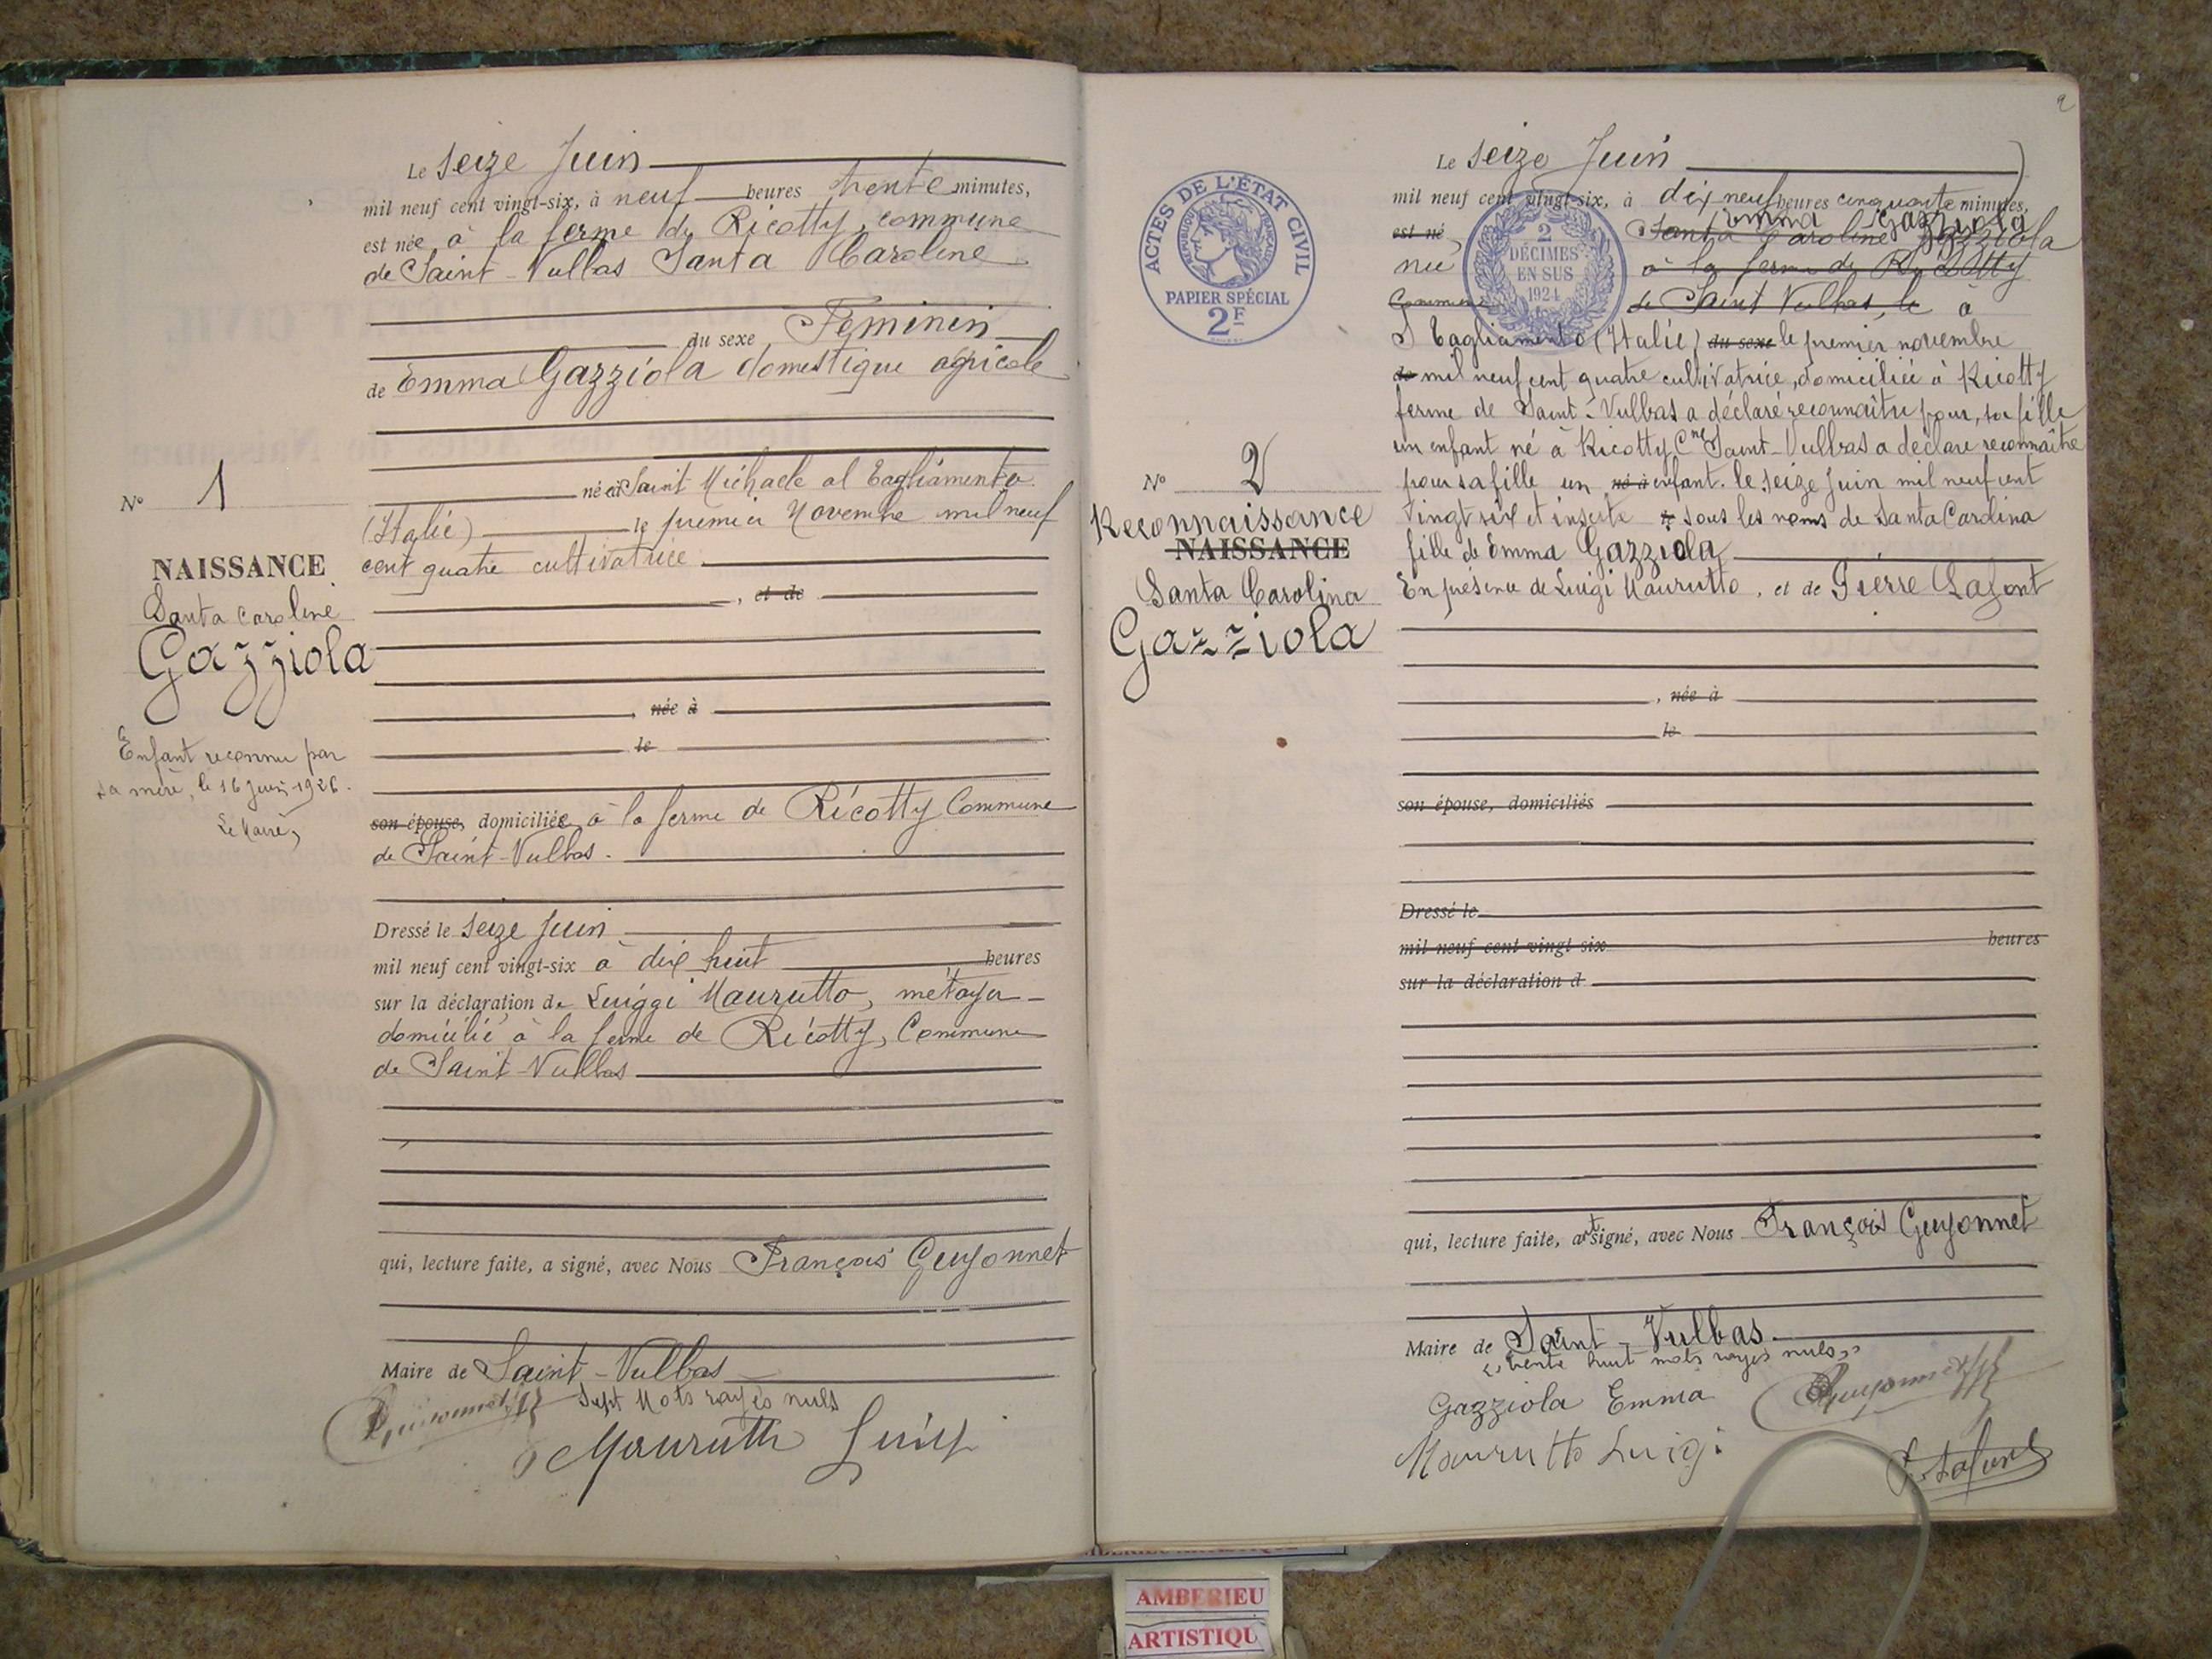 Le seize Juin
mil neuf cent vingt-six, à neuf heures trente minutes,
est née à la ferme de Ricotty, commune
de Saint-Vulbas Santa Caroline
du sexe Féminin
de Emma Gazziola domestique agricole
née à Saint Michaele al Tagliamento
(Italie) le premier Novembre mil neuf
cent quatre cultivatrice
, et de
, née à
le
son épouse, domiciliée à la ferme de Ricotty Commune
de Saint-Vulbas.
Dressé le seize Juin
mil neuf cent vingt-six à dix huit heures
sur la déclaration de Luiggi Maurutto, métayer
domicilié à la ferme de Ricotty, Commune
de Saint-Vulbas
qui, lecture faite, a signé, avec Nous François Guyonnet
Maire de Saint-Vulbas
Sept Mots rayés nuls
Guyonnet
Maurutto Luigi
N° 1
NAISSANCE
Santa Caroline
Gazziola
Enfant reconnu par
sa mère, le 16 Juin 1926.
Le Maire,
2
ACTES DE L'ÉTAT CIVIL
RÉPUBLIQUE FRANÇAISE
PAPIER SPÉCIAL
2F
2
DÉCIMES
EN SUS
1924
N° 2
Reconnaissance
NAISSANCE
Santa Carolina
Gazziola
Le seize Juin
mil neuf cent vingt-six, à dix neuf heures cinquante minutes,
Emma Gazziola
est né Santa Caroline Gazziola
née à la ferme de Ricotty
Commune de Saint Vulbas, le à
S Tagliamento (Italie) du sexe le premier novembre
de mil neuf cent quatre cultivatrice, domiciliée à Ricotty
ferme de Saint-Vulbas a déclaré reconnaître pour, sa fille
un enfant né à Ricotty Cne Saint-Vulbas a déclaré reconnaître
pour sa fille un né à enfant. le seize Juin mil neuf cent
vingt six et inscrite sous les noms de Santa Carolina
fille de Emma Gazziola
En présence de Luigi Maurutto, et de Pierre Lafont
, née à
le
son épouse, domiciliés
Dressé le
mil neuf cent vingt-six heures
sur la déclaration d
qui, lecture faite, ont signé, avec Nous François Guyonnet
Maire de Saint-Vulbas
"trente huit mots rayés nuls"
Gazziola Emma Guyonnet
Maurutto Luigi
P. Lafont
AMBERIEU
ARTISTIQU